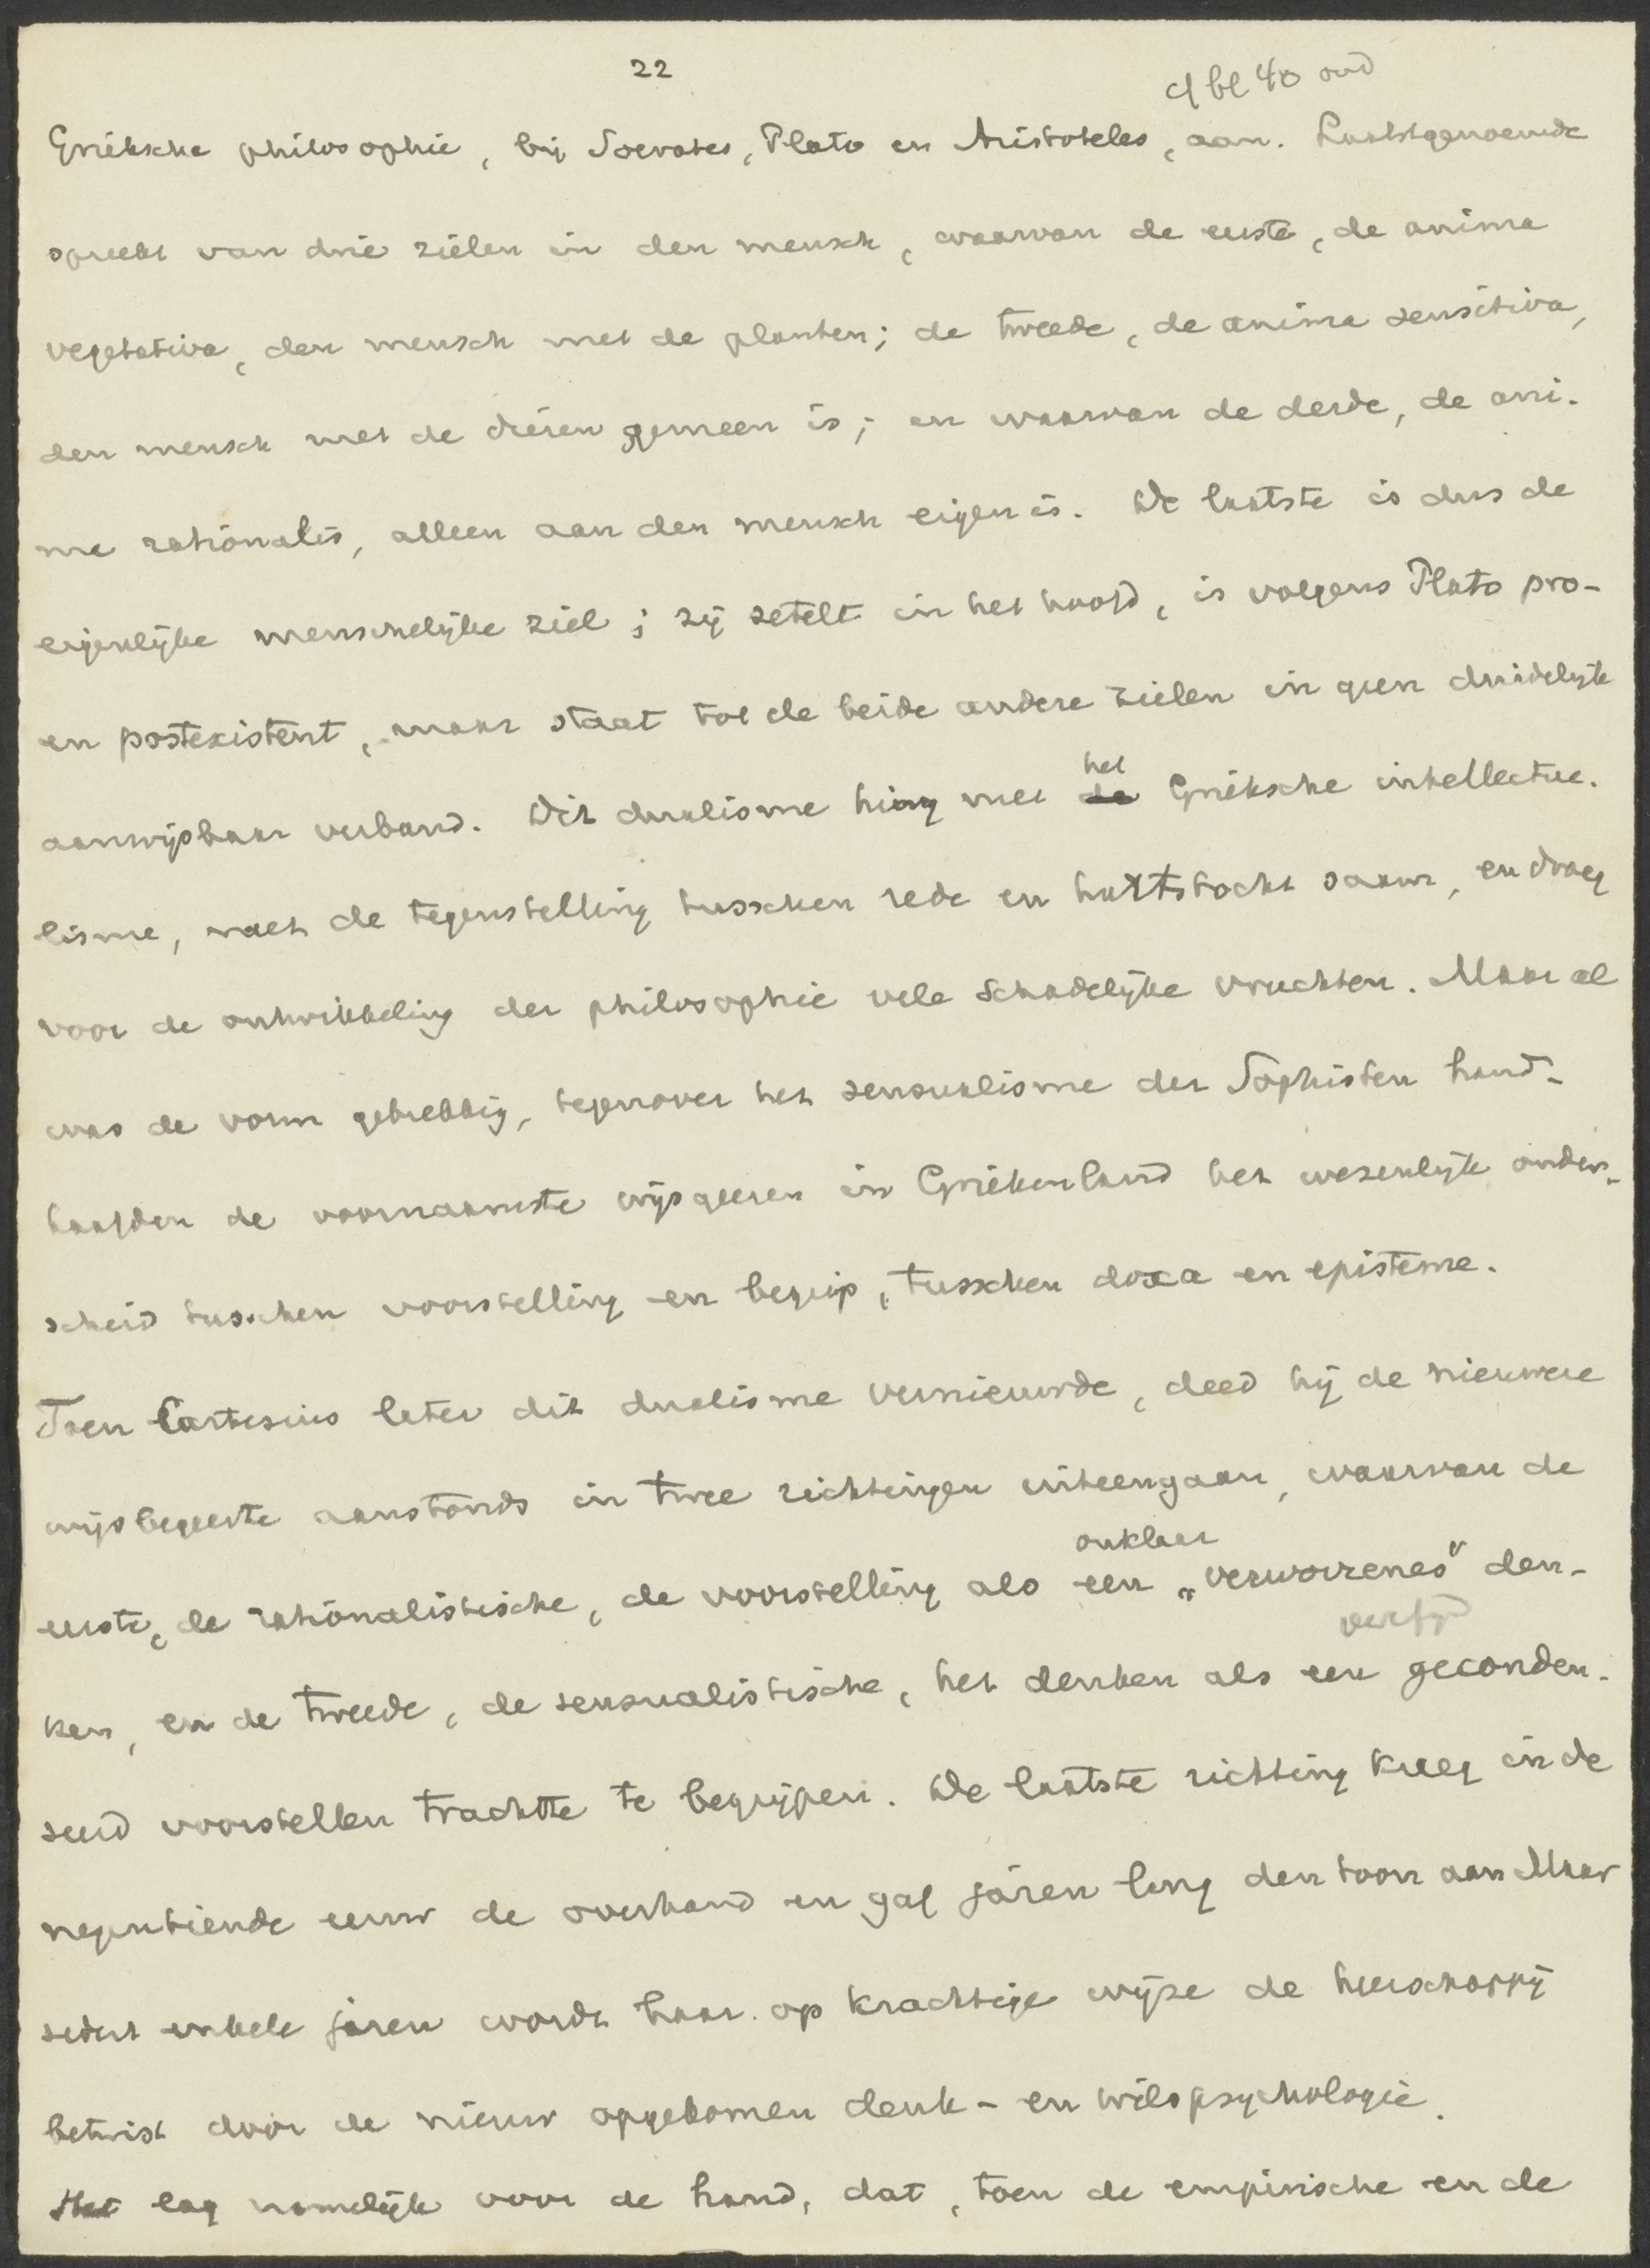 22
cf bl 40 oud
Grieksche philosophie, bij Socrates, Plato en Aristoteles, aan. Laatstgenoemde
spreekt van drie zielen in den mensch, waarvan de eerste, de anima
vegetativa, den mensch met de planten; de tweede, de anima sensitiva,
den mensch met de dieren gemeen is; en waarvan de derde, de ani-
ma rationalis, alleen aan den mensch eigen is. De laatste is dus de
eigenlijke menschelijke ziel; zij zetelt in het hoofd, is volgens Plato pro-
en postexistent, maar staat tot de beide andere zielen in geen duidelijk
aanwijsbaar verband. Dit dualisme hing met de het Grieksche intellectua-
lisme, met de tegenstelling tusschen rede en hartstocht saam, en droeg
voor de ontwikkeling der philosophie vele schadelijke vruchten. Maar al
was de vorm gebrekkig, tegenover het sensualisme der Sophisten hand-
haafden de voornaamste wijsgeeren in Griekenland het wezenlijk onder-
scheid tusschen voorstelling en begrip, tusschen doxa en episteme.
Toen Cartesius later dit dualisme vernieuwde, deed hij de nieuwere
wijsbegeerte aanstonds in twee richtingen uiteengaan, waarvan de
onklaar
eerste, de rationalistische, de voorstelling als een „verworrenes" den-
verfijnd
ken, en de tweede, de sensualistische, het denken als een geconden-
seerd voorstellen trachtte te begrijpen. De laatste richting kreeg in de
negentiende eeuw de overhand en gaf jaren lang den toon aan. Maar
sedert enkele jaren wordt haar op krachtige wijze de heerschappij
betwist door de nieuw opgekomen denk- en wilspsychologie.
Het lag namelijk voor de hand, dat, toen de empirische en de